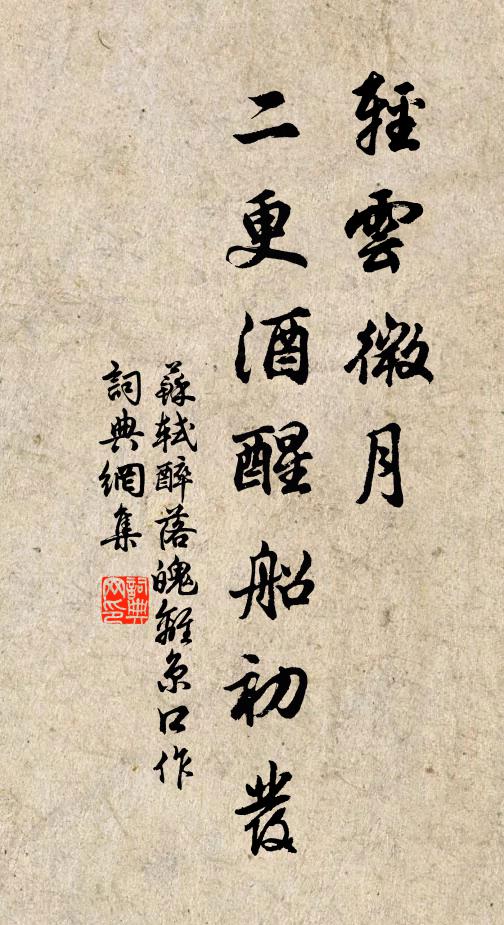 輕雲微月
二更酒醒船初發
蘇軾醉落魄離京口作
詞典網集
詞典
网印